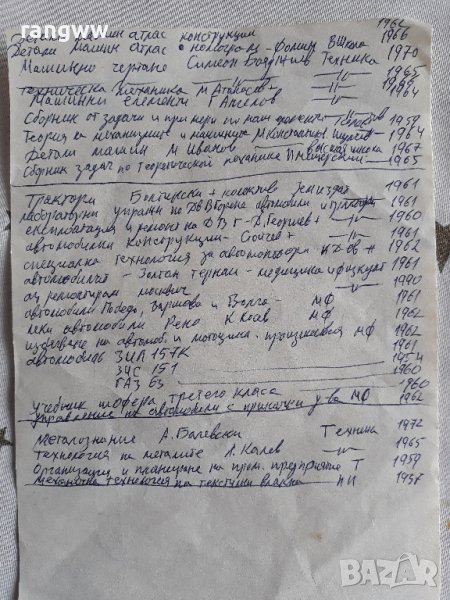 rangww
Детали машин атлас конструкции 1962
Детали машин атлас номограм - Фомин В Школа 1966
Машинно чертане Симеон Техника 1970
1965
Техническа механика М Атанасов + 1966
Машинни елементи Г Ангелов 1964
Сборник от задачи и примери по маш. елементи 1959
Теория на механизмите и машините М Константинов 1964
Детали машин М Иванов Высшая школа 1967
Сборник задач по теоретической механике И Мещерский 1965
Трактори + колектив Земиздат 1961
Лабораторни упражн по ДВГ автомобили и трактори 1961
експлоатация и ремонт на ДВГ - Д. Георгиев + 1960
автомобилни конструкции - + 1961
специална технология за автомонтьори 1962
автомобилът - Золтан Терпан - медицина и физкулт 1961
аз ремонтирам москвич 1990
автомобили Победа, Варшава и Волга МФ 1961
леки автомобили Рено К МФ 1962
на автомоб. и мотоцикл. произшествия МФ 1962
автомобиль ЗИЛ 157К 1961
ЗИС 151 1954
ГАЗ 63 1960
учебник шофьора третего класа 1960
управление на автомобили с МФ 1962
Металознание А. Балевски Техника 1972
Технология на металите Л. Калев 1965
Организация и планиране на пром. предприятие Т 1959
Механична технология на текстилни влакна НИ 1957
BAZAR